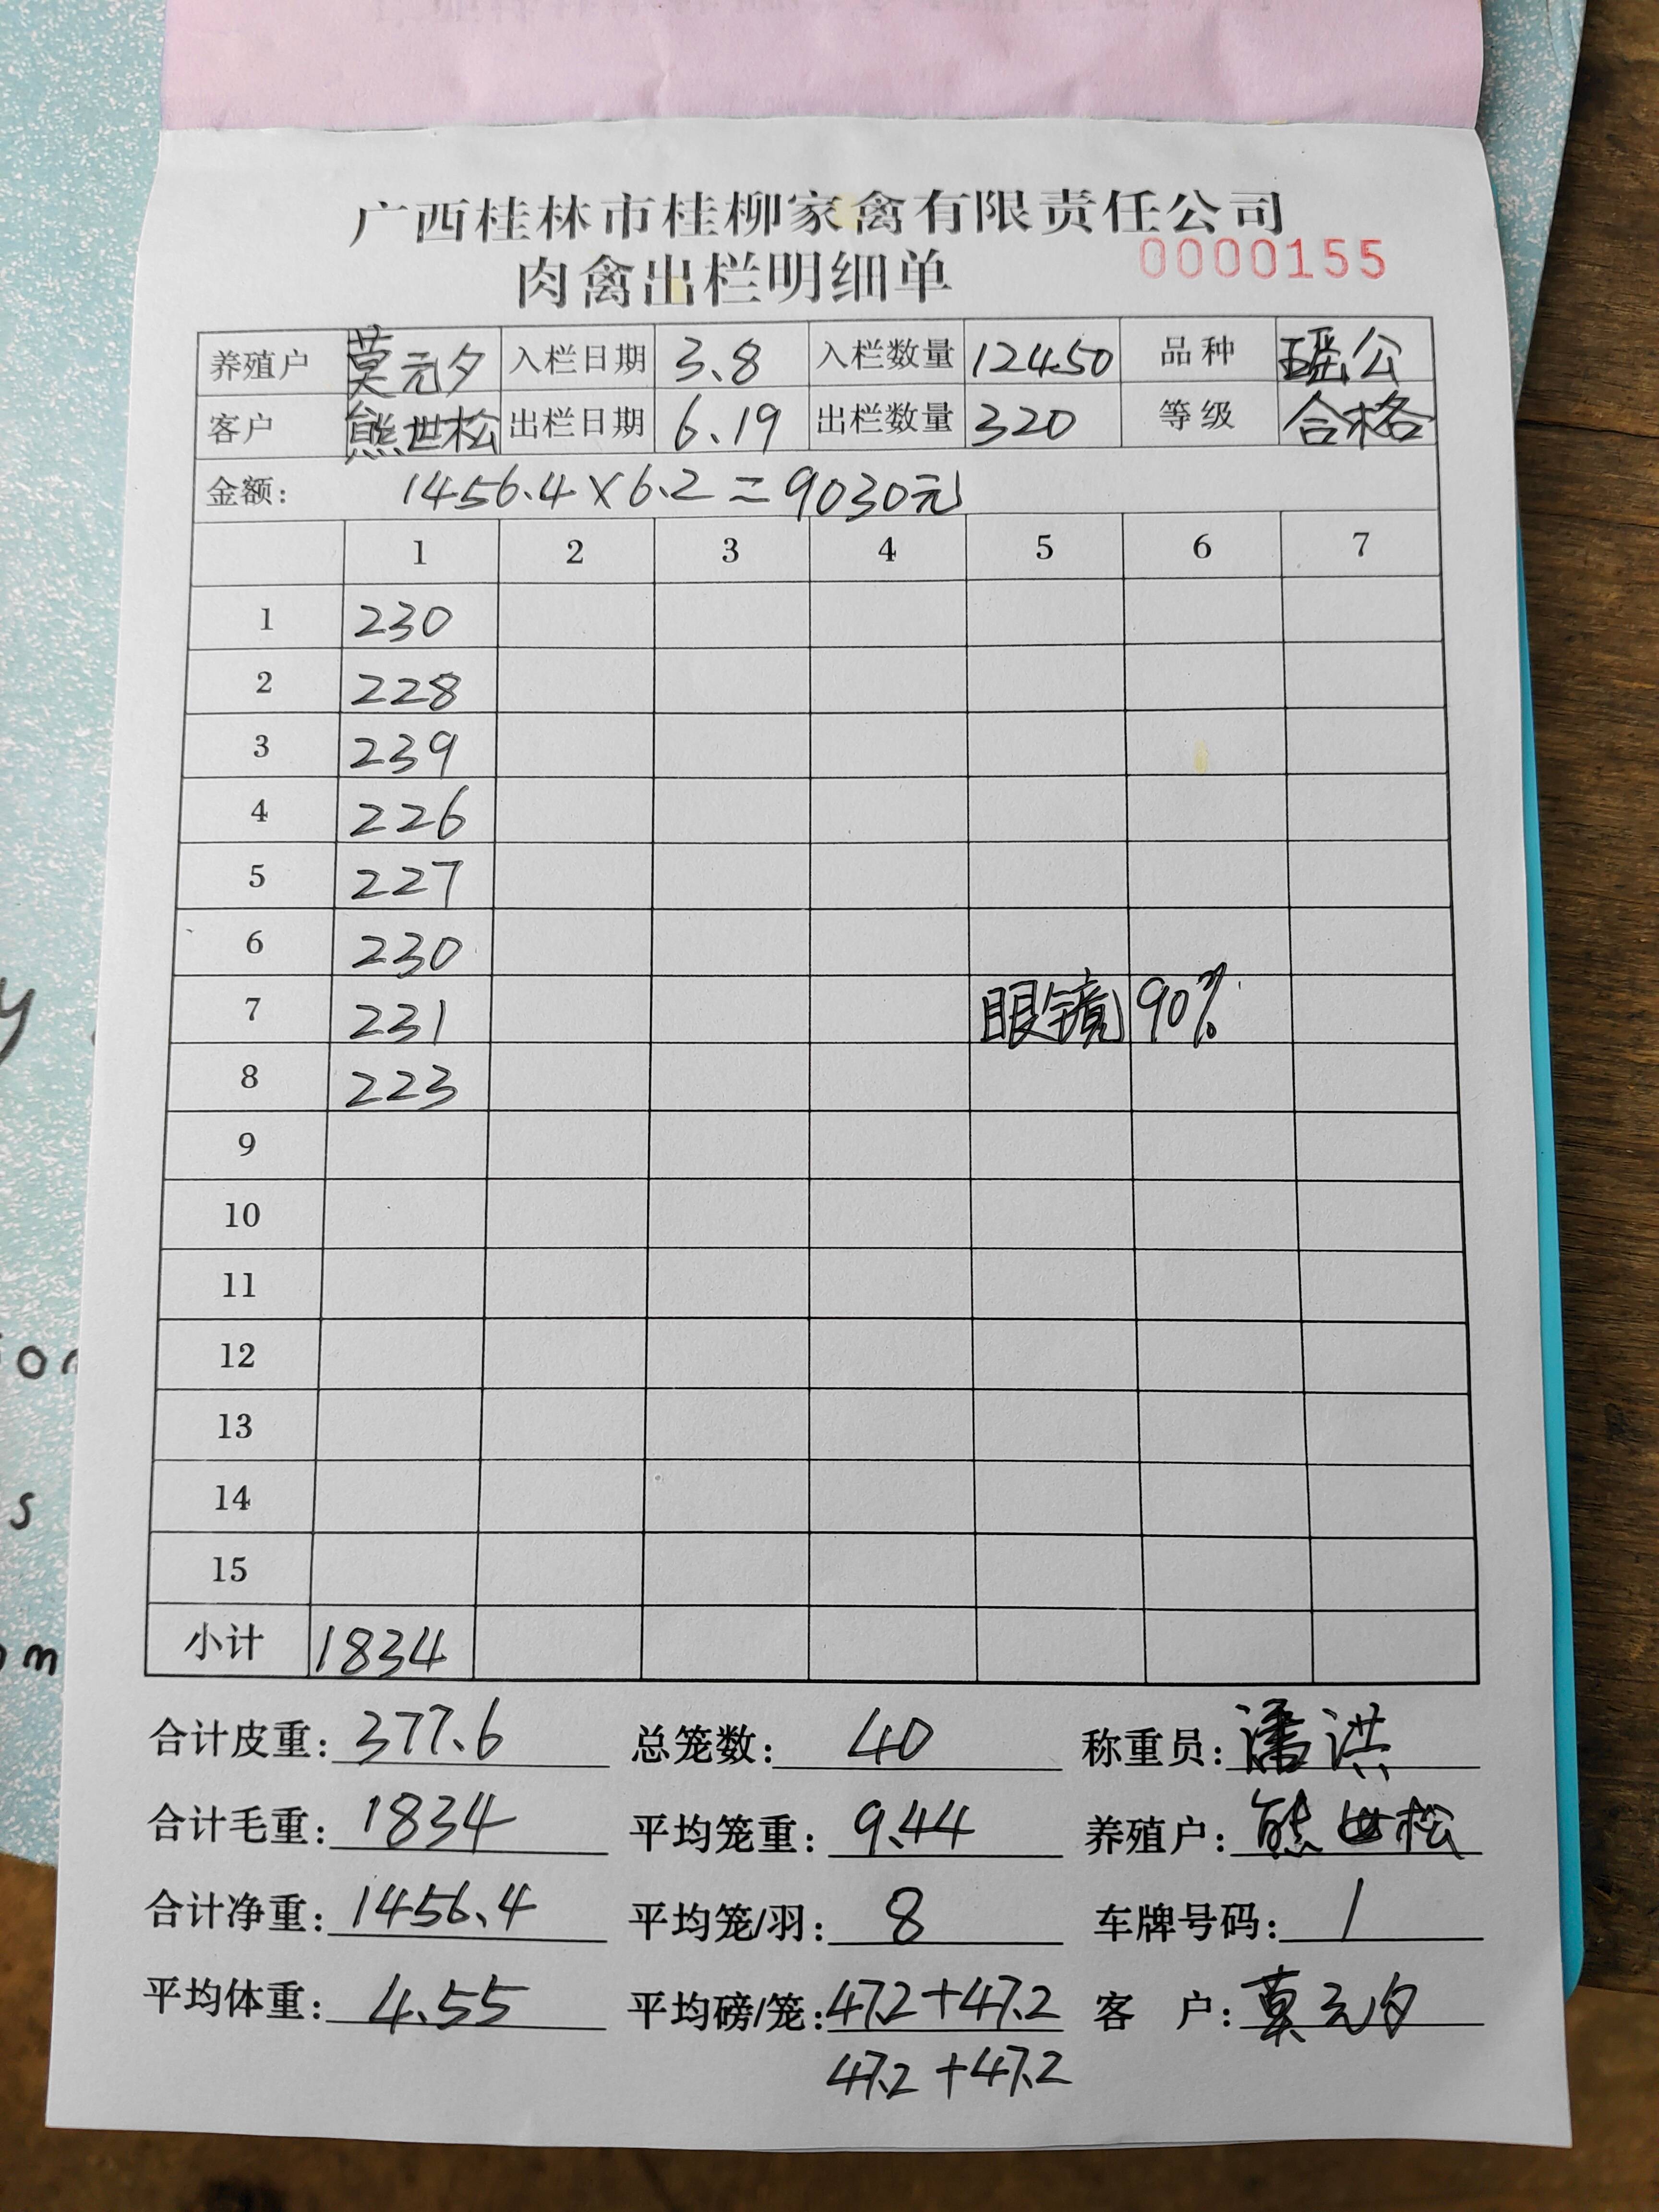 广西桂林市桂柳家禽有限责任公司
肉禽出栏明细单 0000155
养殖户 莫元夕 入栏日期 3.8 入栏数量 12450 品种 瑶公
客户 熊世松 出栏日期 6.19 出栏数量 320 等级 合格
金额: 1456.4×6.2=9030元
1 2 3 4 5 6 7
1 230
2 228
3 239
4 226
5 227
6 230
7 231 眼镜 90%
8 223
9
10
11
12
13
14
15
小计 1834
合计皮重: 377.6 总笼数: 40 称重员: 潘洪
合计毛重: 1834 平均笼重: 9.44 养殖户: 熊世松
合计净重: 1456.4 平均笼/羽: 8 车牌号码: 1
平均体重: 4.55 平均磅/笼: 47.2+47.2 客户: 莫元夕
47.2+47.2